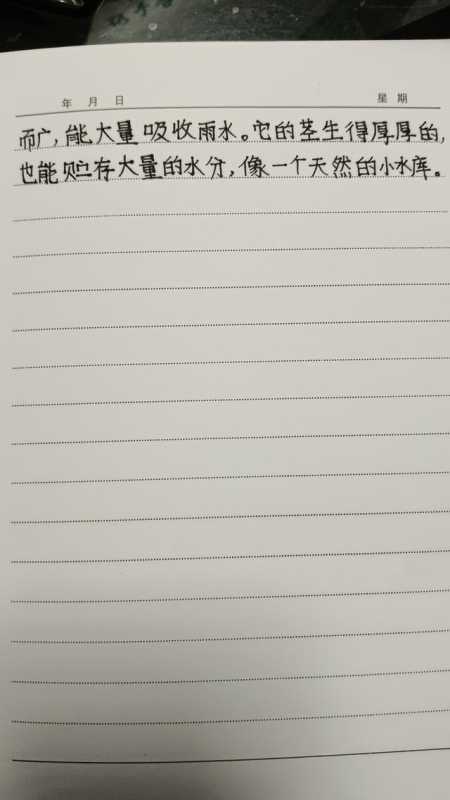 年 月 日 星 期
而广,能大量吸收雨水。它的茎生得厚厚的,
也能贮存大量的水分,像一个天然的小水库。